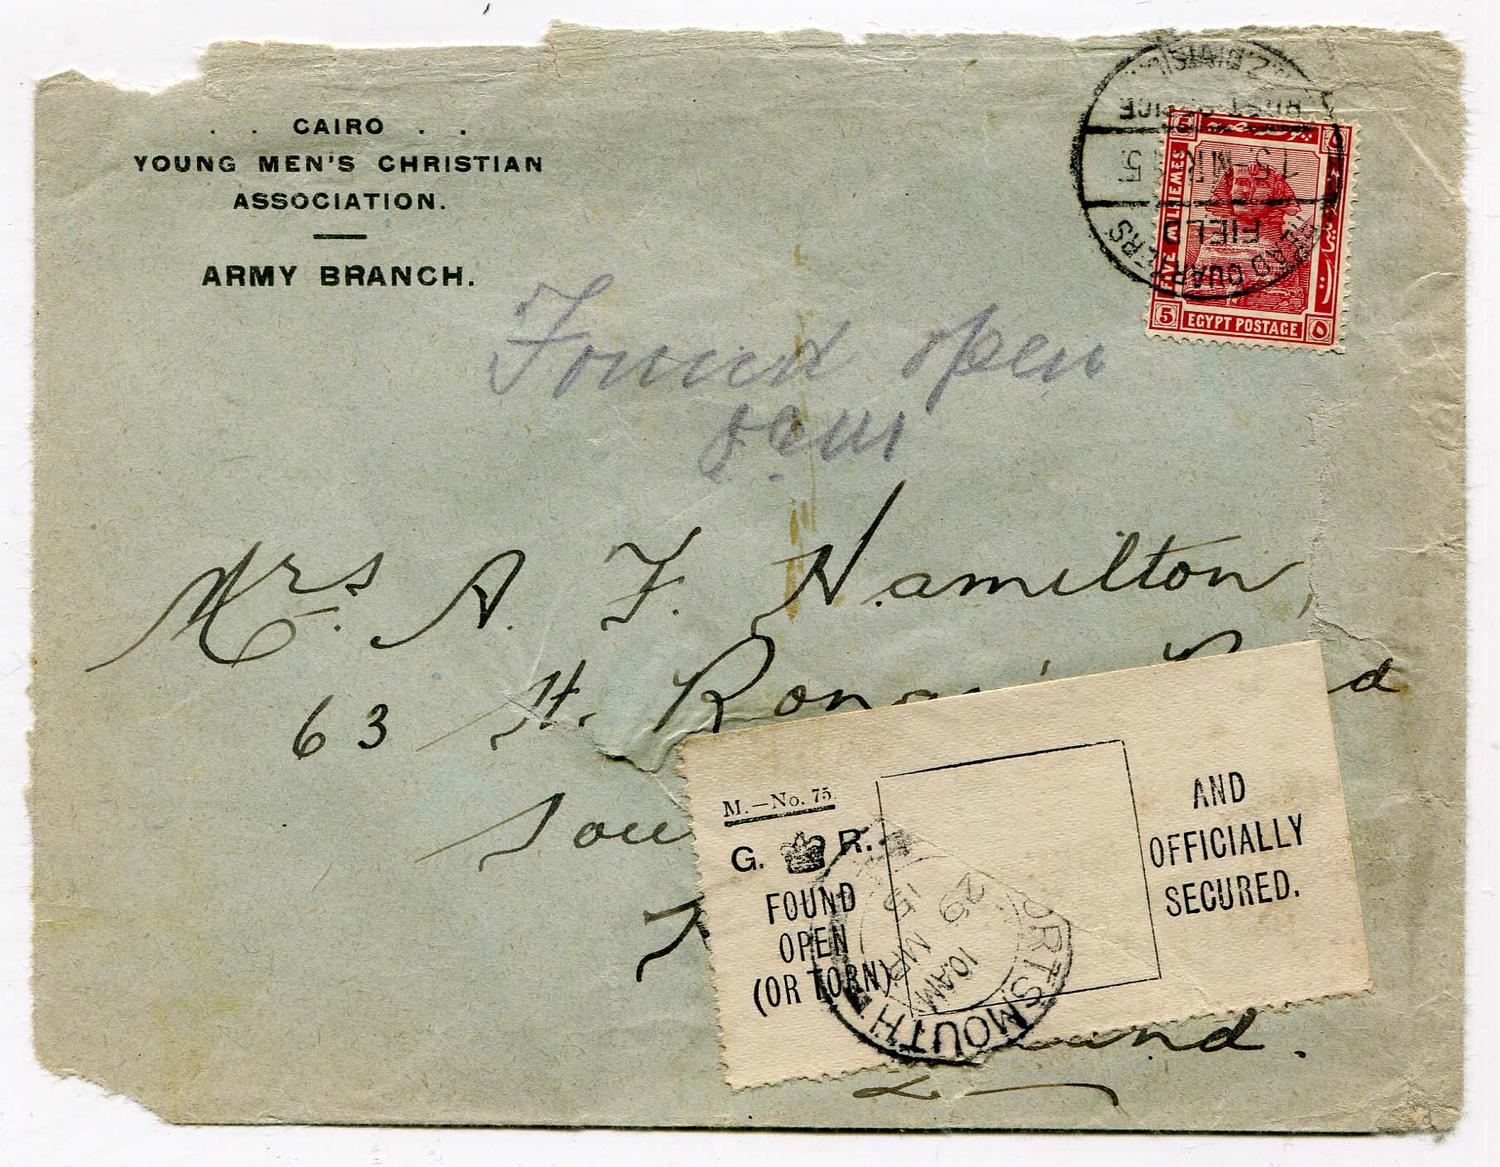 . . CAIRO . .
YOUNG MEN'S CHRISTIAN
ASSOCIATION.
ARMY BRANCH.
POST OFFICE
15 MR 15
FIELD
HEAD QUARTERS
5
FIVE MILLIEMES
5 EGYPT POSTAGE ٥
Found open
Mrs. A. F. Hamilton,
63 St. Ronan's Road
Sou
M.—No. 75.
G. R.
FOUND
OPEN
(OR TORN)
AND
OFFICIALLY
SECURED.
PORTSMOUTH
10AM
29 MR
15
and.